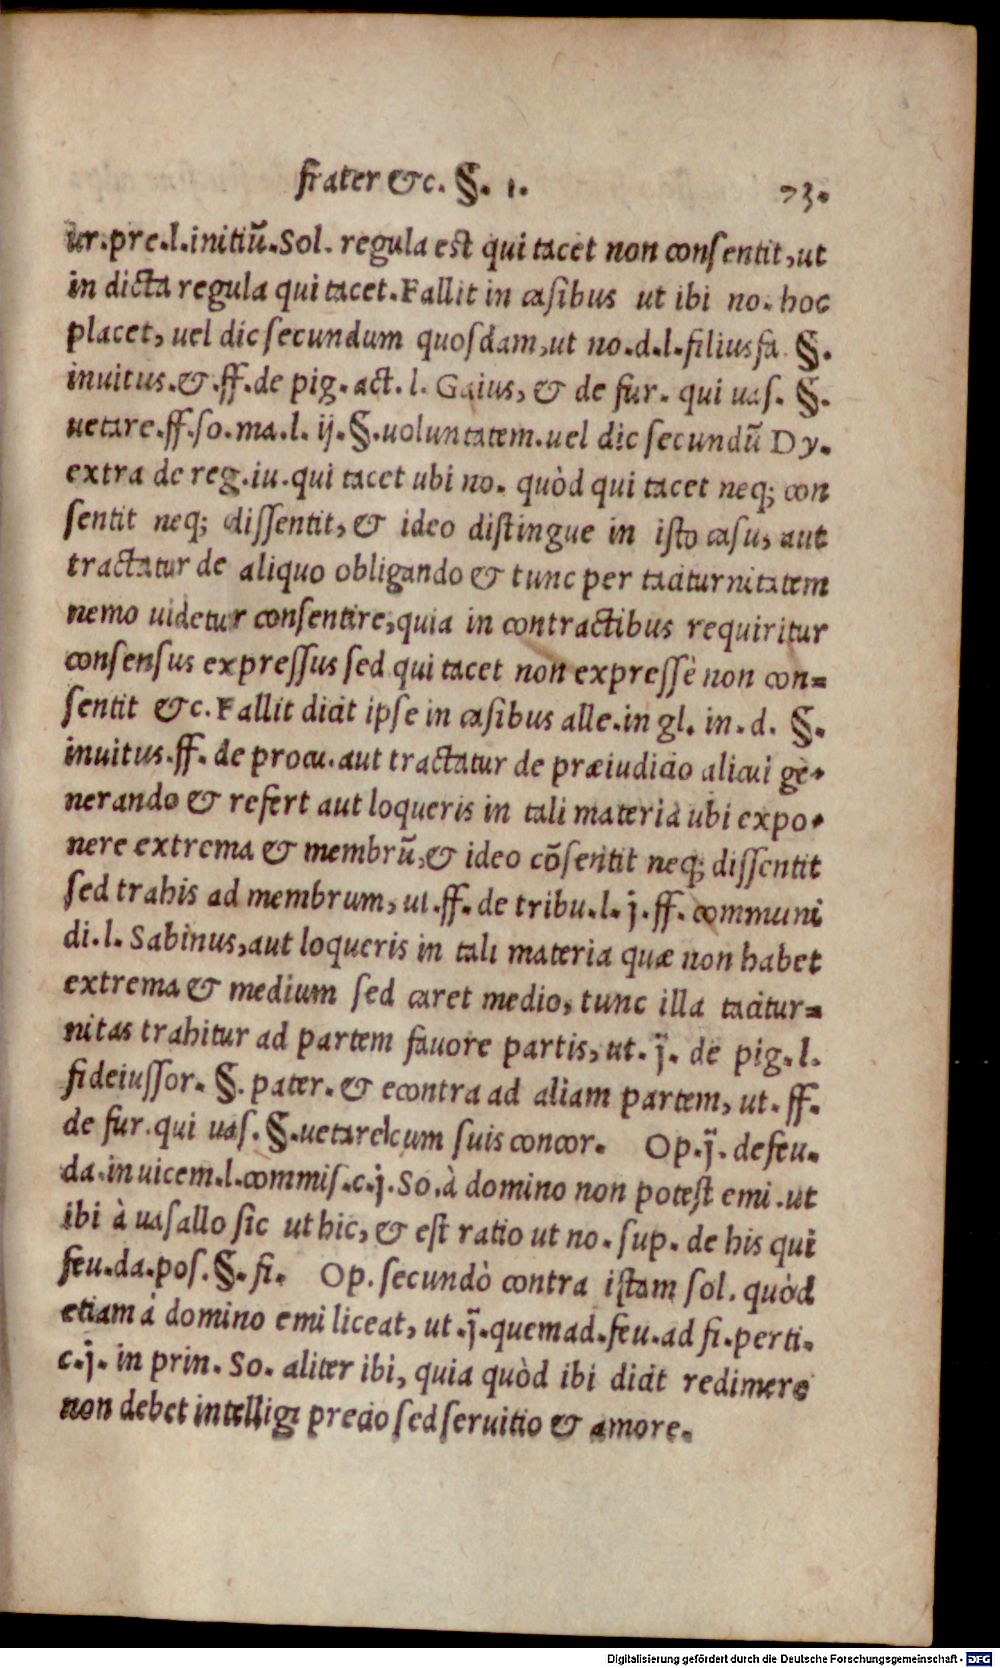 frater &c. §. 1. 73.
ur.pre.l.initiũ.Sol. regula est qui tacet non consentit, ut
in dicta regula qui tacet. Fallit in casibus ut ibi no. hoc
placet, uel dic secundum quosdam, ut no.d.l.filiusfa. §.
inuitus.&.ff.de pig.act.l. Gaius, & de fur. qui uas. §.
uetare.ff.so.ma.l.ij.§.uoluntatem.uel dic secundũ Dy.
extra de reg.iu.qui tacet ubi no. quòd qui tacet neq; con
sentit neq; dissentit, & ideo distingue in isto casu, aut
tractatur de aliquo obligando & tunc per taciturnitatem
nemo uidetur consentire, quia in contractibus requiritur
consensus expressus sed qui tacet non expressè non con=
sentit &c. Fallit dicit ipse in casibus alle.in gl. in.d. §.
inuitus.ff.de procu.aut tractatur de præiudicio alicui ge=
nerando & refert aut loqueris in tali materia ubi expo=
nere extrema & membrũ, & ideo cõsentit neq; dissentit
sed trahis ad membrum, ut.ff.de tribu.l.j.ff.communi
di.l. Sabinus, aut loqueris in tali materia quæ non habet
extrema & medium sed caret medio, tunc illa tacitur=
nitas trahitur ad partem fauore partis, ut. j̃. de pig.l.
fideiussor. §. pater. & econtra ad aliam partem, ut. ff.
de fur.qui uas.§.uetare cum suis concor. Op.j̃.de feu.
da.inuicem.l.commis.c.j.So.à domino non potest emi.ut
ibi à uasallo sic ut hic, & est ratio ut no.sup.de his qui
feu.da.pos.§.fi. Op.secundò contra istam sol. quòd
etiam à domino emi liceat, ut.j̃.quemad.feu.ad fi.perti.
c.j. in prin. So. aliter ibi, quia quòd ibi dicit redimere
non debet intelligi precio sed seruitio & amore.
Digitalisierung gefördert durch die Deutsche Forschungsgemeinschaft - DFG